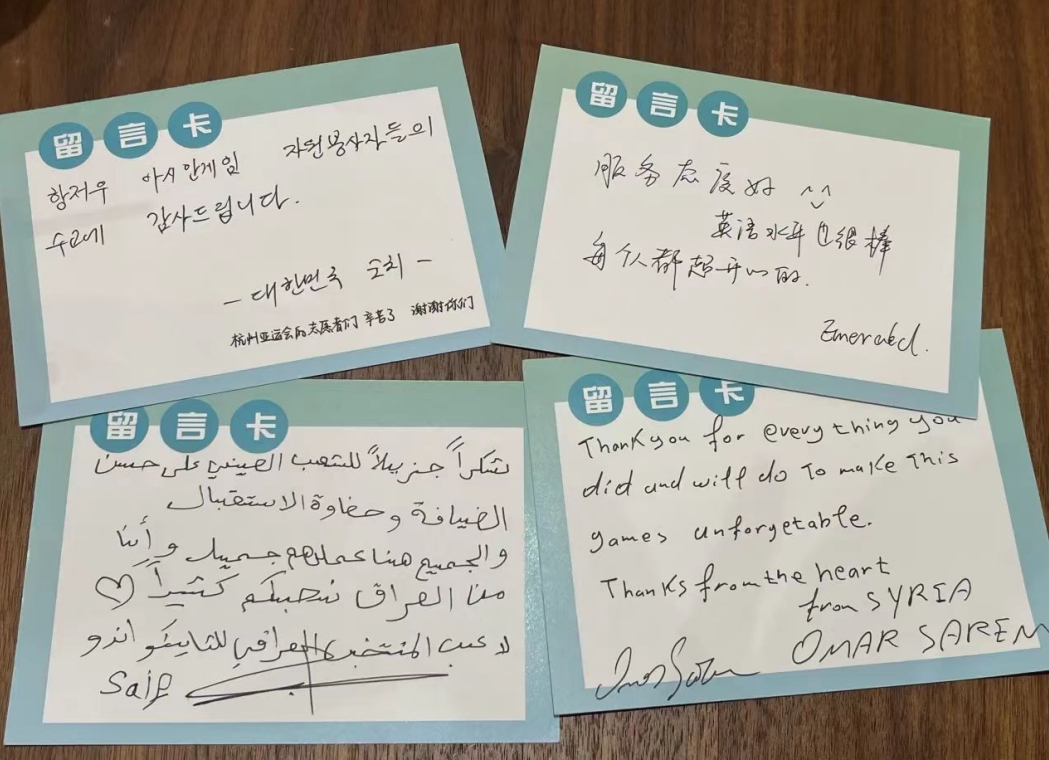 留言卡
항저우 아시안게임 자원봉사자들의
수고에 감사드립니다.
- 대한민국 -
杭州亚运会的志愿者们 辛苦了 谢谢你们
留言卡
服务态度好 ^^
英语水平也很棒
每个人都超开心的.
Emerabd.
留言卡
شكراً جزيلاً للشعب الصيني على حسن
الضيافة وحفاوة الاستقبال
والجميع هنا عملهم جميل وأننا
من العراق نحبكم كثيراً ♡
لاعب المنتخب العراقي للتايكواندو
Saif
留言卡
Thank you for everything you
did and will do To make This
games unforgetable.
Thanks from the heart
from SYRIA
OMAR SAREM